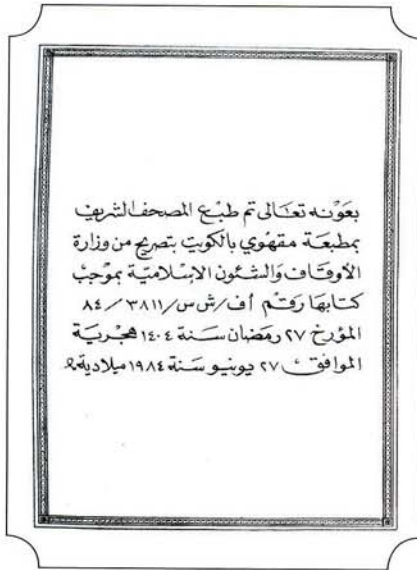 بعونه تعالى تم طبع المصحف الشريف
بمطبعة مقهوي بالكويت بتصريح من وزارة
الأوقاف والشئون الإسلامية بموجب
كتابها رقم أف/ش س/٣٨١١/٨٤
المؤرخ ٢٧ رمضان سنة ١٤٠٤ هجرية
الموافق ٢٧ يونيو سنة ١٩٨٤ ميلادية